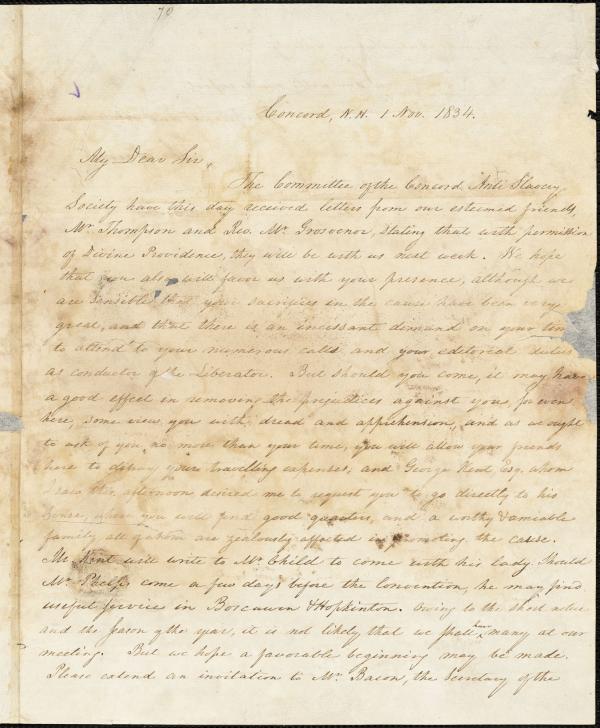 70
Concord, N.H. 1 Nov. 1834.
My Dear Sir,
The Committee of the Concord Anti Slavery
Society have this day received letters from our esteemed friends,
Mr. Thompson and Rev. Mr. Grosvenor, stating that with permission
of Divine Providence, they will be with us next week. We hope
that you also will favor us with your presence, although we
are sensible that your sacrifices in the cause have been very
great, and that there is an incessant demand on your time
to attend to your numerous calls and your editorial duties
as conductor of the Liberator. But should you come, it may have
a good effect in removing the prejudices against you, for even
here, some view you with dread and apprehension, and as we ought
to ask of you no more than your time, you will allow your friends
here to defray your travelling expenses, and George Kent Esq. whom
I saw this afternoon desired me to request you to go directly to his
house, where you will find good quarters, and a worthy & amiable
family all of whom are zealously affected in promoting the cause.
Mr. Kent will write to Mr. Child to come with his lady. Should
Mr. Phelps come a few days before the Convention, he may find
useful service in Boscawen & Hopkinton. Owing to the short notice
and the season of the year, it is not likely that we shall have many at our
meeting. But we hope a favorable beginning may be made.
Please extend an invitation to Mr. Bacon, the Secretary of the